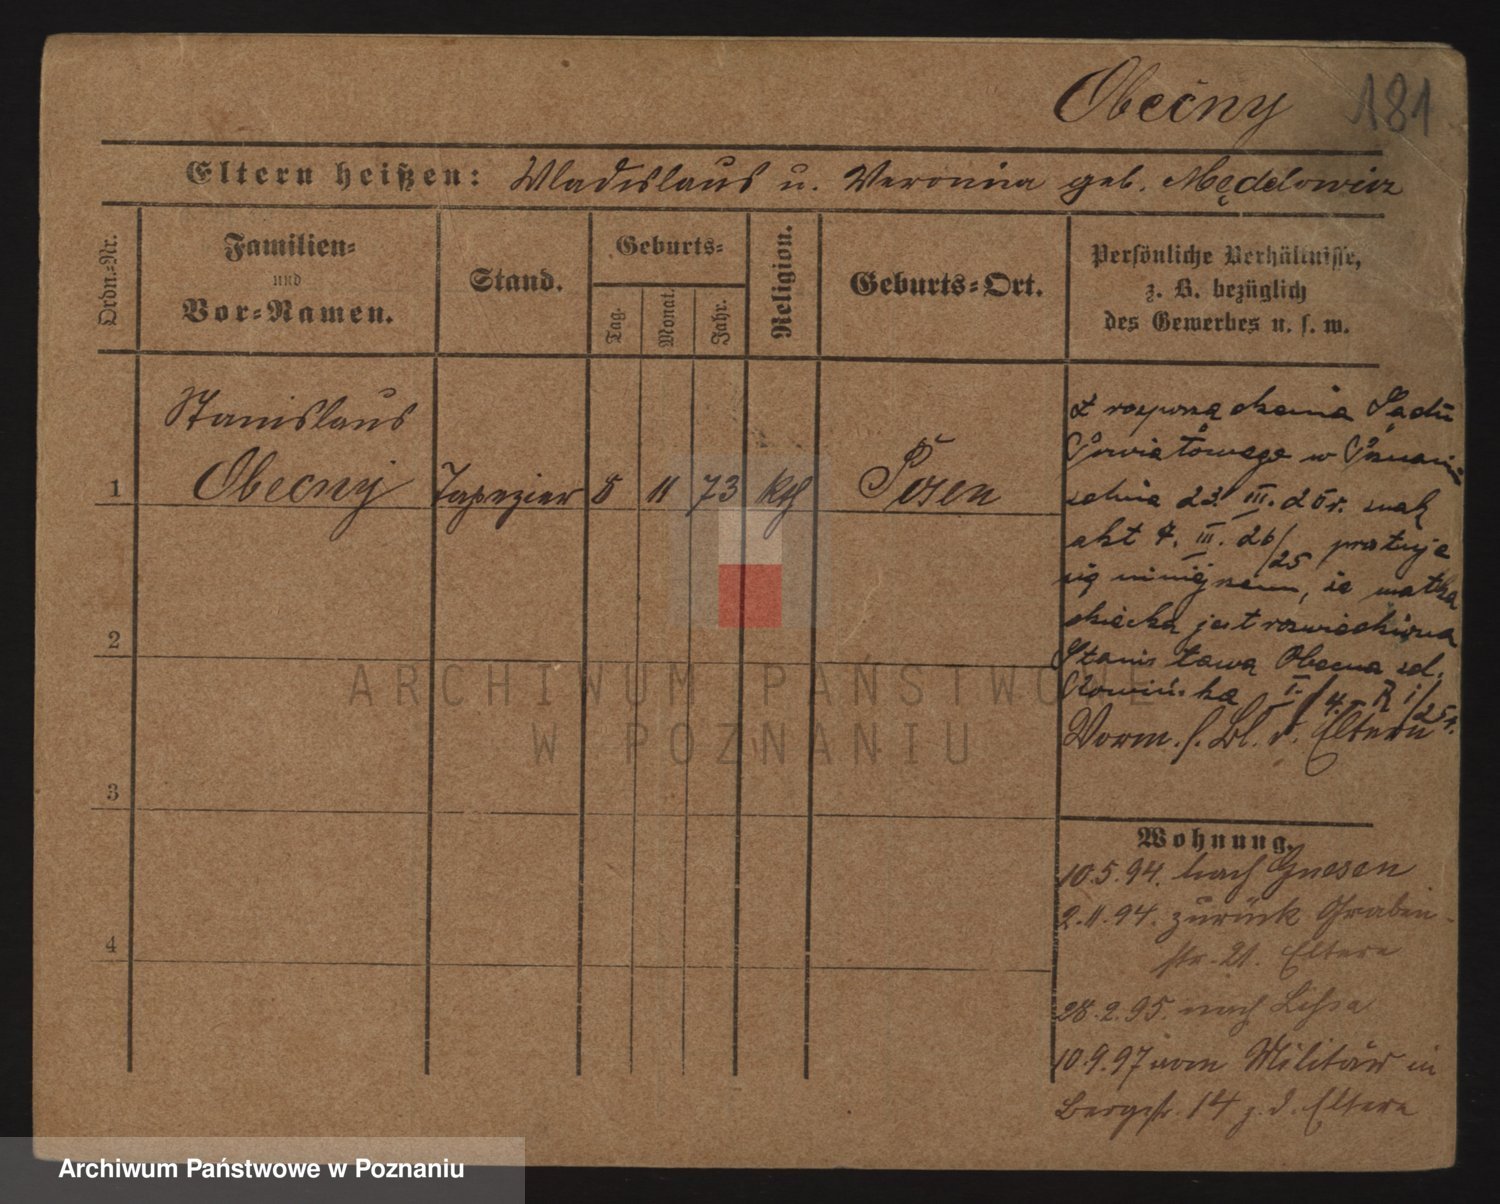 Obecny 181
Eltern heißen: Wladislaus u. Veronina geb. Mędelowicz
Ordn.-Nr.
Familien-
und
Vor-Namen.
Stand.
Geburts-
Tag.
Monat.
Jahr.
Religion.
Geburts-Ort.
Persönliche Verhältnisse,
z. B. bezüglich
des Gewerbes u. s. w.
Stanislaus
1 Obecny Tapezier 8 11 73 kth Posen
2
3
4
Z rozporządzenia Sądu
Powiatowego w Poznaniu
z dnia 23. III. 25 r. znak
akt 7. III. 26/25 prostuje
się niniejszem, że matką
dziecka jest rozwiedziona
Stanisława Obecna
I. 4.
Vorm. s. Bl. d. Eltern
Wohnung.
10.5.94. nach Gnesen
2.11.94. zurück Graben-
str. 21. Eltern
28.2.95. nach Lissa
10.9.97 vom Militär in
Bergstr. 14 z. d. Eltern
ARCHIWUM PAŃSTWOWE
W POZNANIU
Archiwum Państwowe w Poznaniu